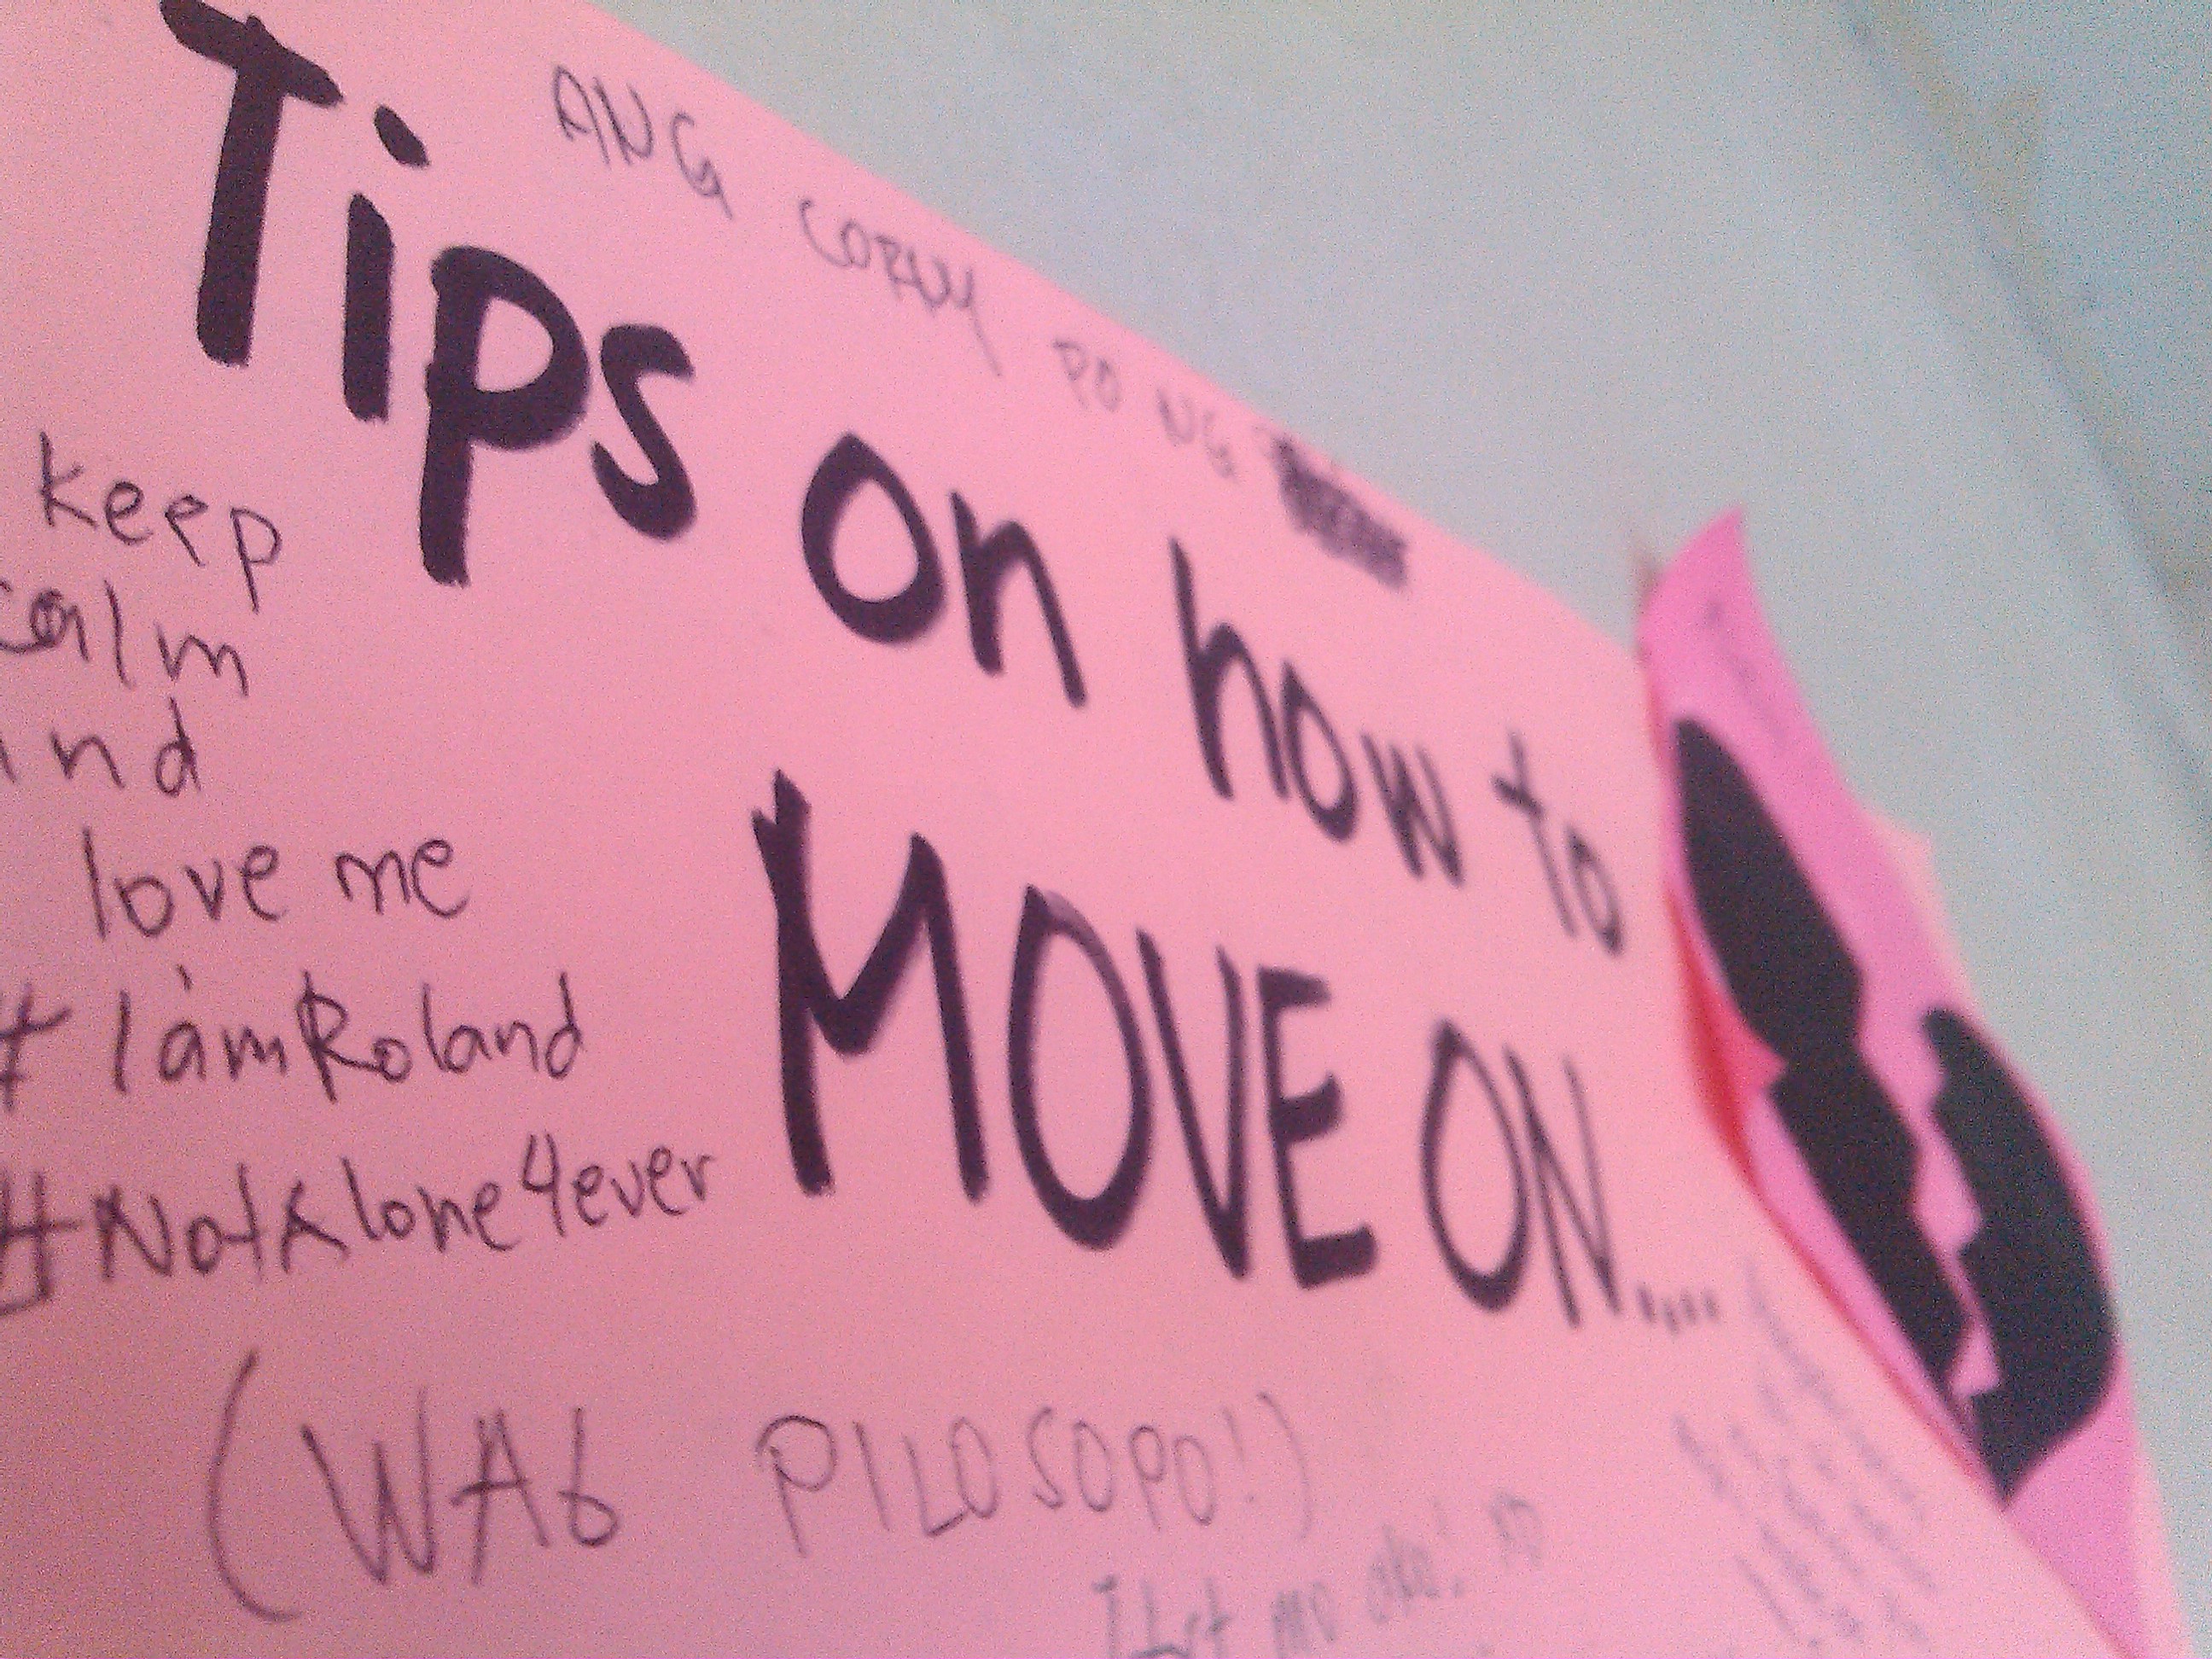 ANG CORNY PO NG
Tips on how to
MOVE ON....
keep
calm
and
love me
#IamRoland
#NotAlone4ever
(WAG PILOSOPO!)